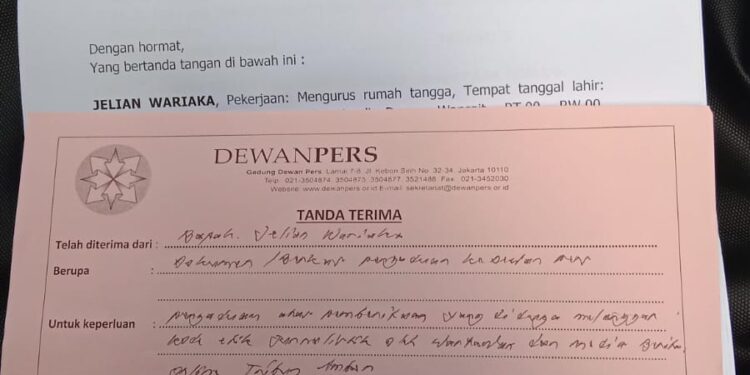 Dengan hormat,
Yang bertanda tangan di bawah ini :
JELIAN WARIAKA, Pekerjaan: Mengurus rumah tangga, Tempat tanggal lahir:
RT.00 RW.00
DEWANPERS
Gedung Dewan Pers, Lantai 7-8, Jl. Kebon Sirih No. 32-34, Jakarta 10110
Telp. 021-3504874, 3504875, 3504877, 3521488 Fax. 021-3452030
Website: www.dewanpers.or.id E-mail: sekretariat@dewanpers.or.id
TANDA TERIMA
Telah diterima dari : Bapak. Jelian Wariaka
Berupa : Dokumen / Berkas pengaduan ke Dewan Pers
Untuk keperluan : pengaduan atas pemberitaan yang diduga melanggar
kode etik Jurnalistik oleh wartawan dan media
online Tribun Ambon